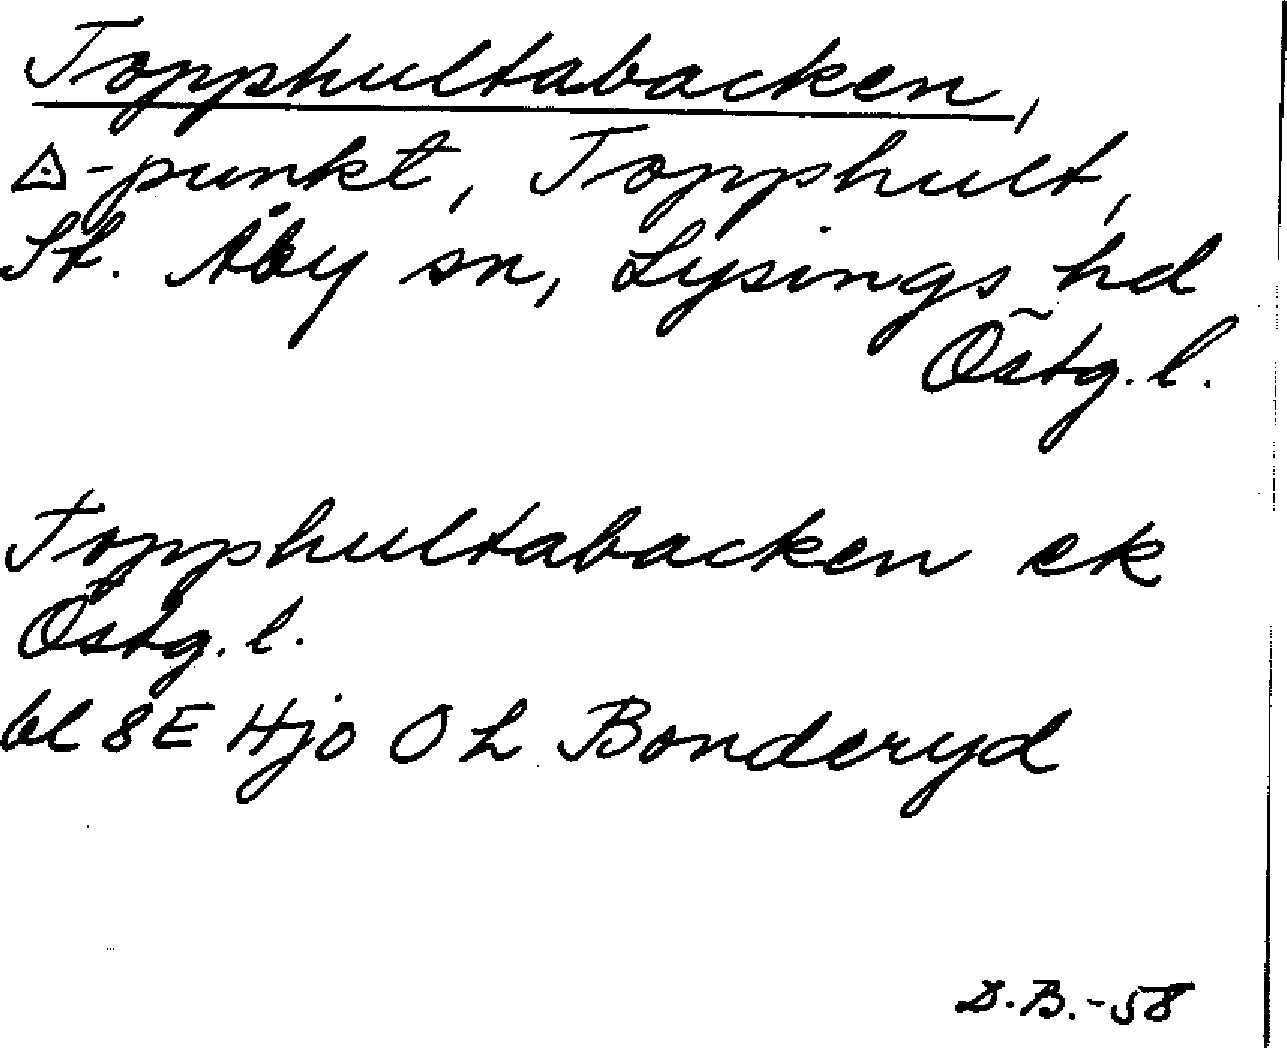 Topphultabacken,
△-punkt, Topphult,
St. Åby sn, Lysings hd
Östg. l.
Topphultabacken ek
Östg. l.
bl 8E Hjo O L Bonderyd
D.B.-58